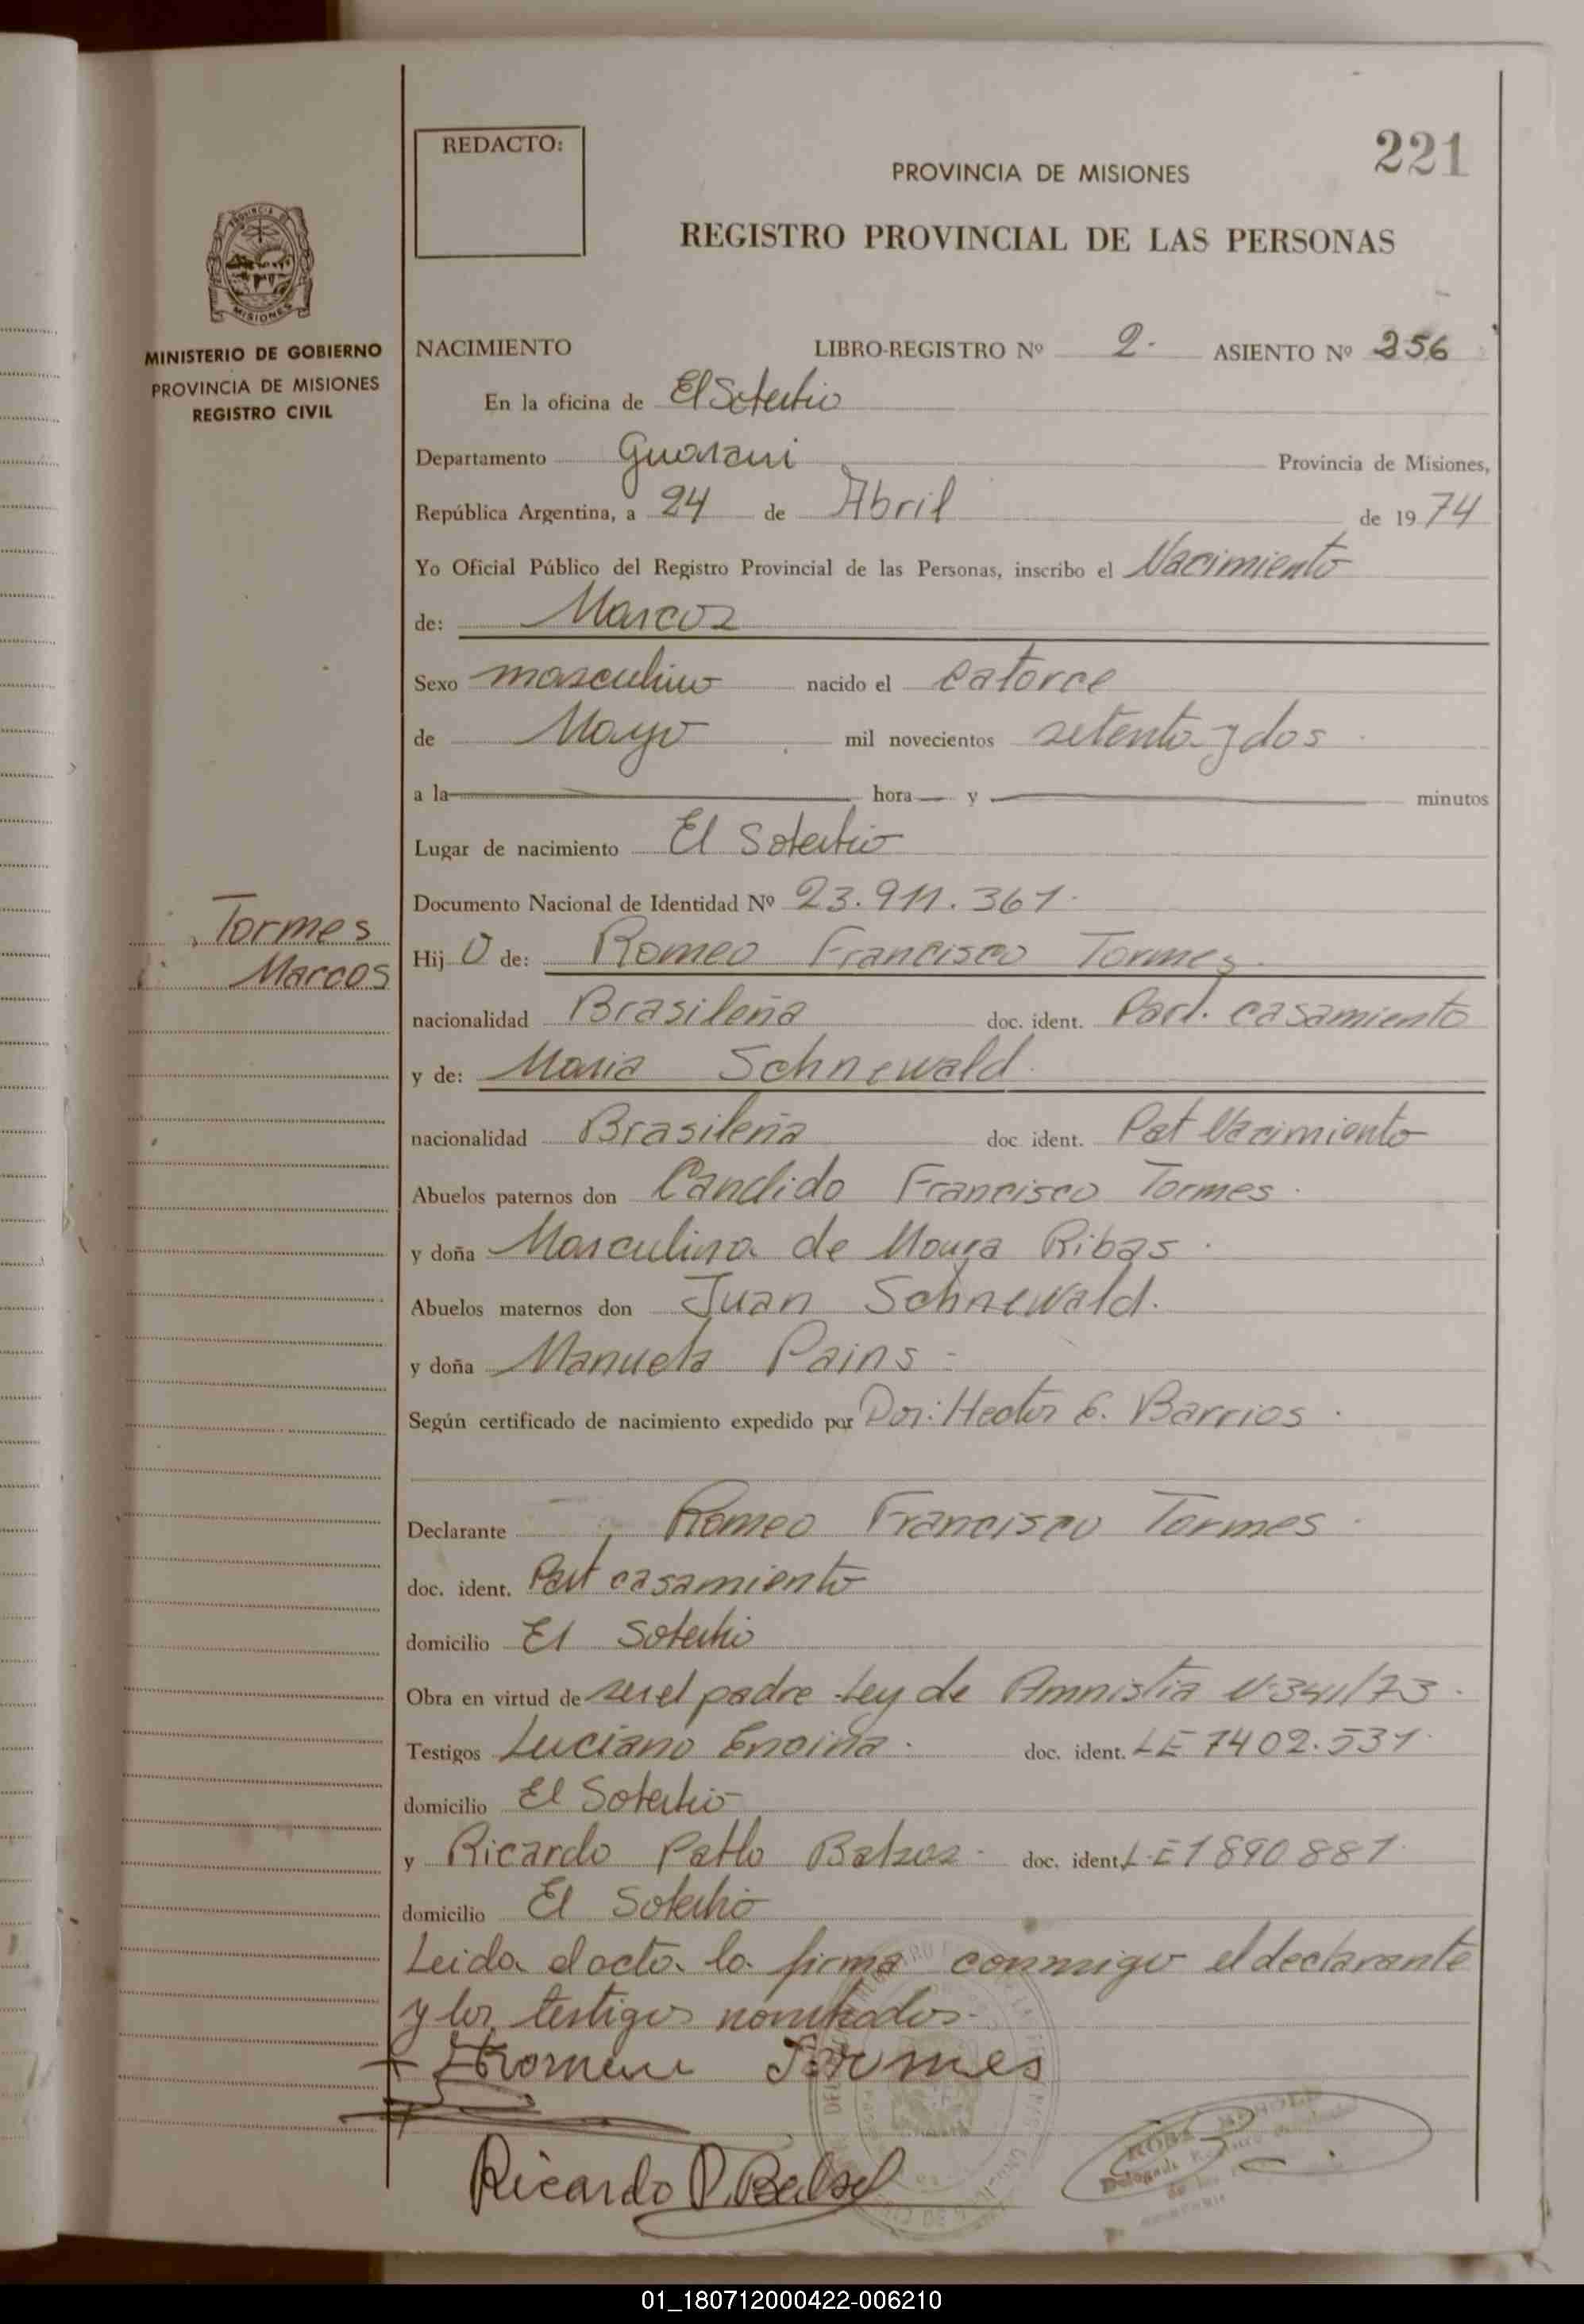 221
REDACTO:
PROVINCIA DE MISIONES
REGISTRO PROVINCIAL DE LAS PERSONAS
PROVINCIA DE
MISIONES
MINISTERIO DE GOBIERNO
PROVINCIA DE MISIONES
REGISTRO CIVIL
NACIMIENTO LIBRO-REGISTRO Nº 2. ASIENTO Nº 256
En la oficina de El Soberbio
Departamento Guarani Provincia de Misiones,
República Argentina, a 24 de Abril de 1974
Yo Oficial Público del Registro Provincial de las Personas, inscribo el Nacimiento
de: Marcos
Sexo masculino nacido el catorce
de Mayo mil novecientos setenta y dos
a la hora y minutos
Lugar de nacimiento El Soberbio
Documento Nacional de Identidad Nº 23.911.361.
Tormes
Marcos
Hij o de: Romeo Francisco Tormes
nacionalidad Brasileña doc. ident. Part. casamiento
y de: Maria Schnewald
nacionalidad Brasileña doc. ident. Pat Nacimiento
Abuelos paternos don Candido Francisco Tormes.
y doña Masculina de Moura Ribas.
Abuelos maternos don Juan Schnewald.
y doña Manuela Pains
Según certificado de nacimiento expedido por Dor: Hector G. Barrios.
Declarante Romeo Francisco Tormes
doc. ident. Part casamiento
domicilio El Soberbio
Obra en virtud de ser el padre Ley de Amnistia Nº 341/73.
Testigos Luciano Encina. doc. ident. LE 7402.531.
domicilio El Soberbio
y Ricardo Pablo doc. ident. L.E 1890881.
domicilio El Soberbio
Leida el acta la firma conmigo el declarante
y los testigos nombrados.
Tormes
Ricardo P.
01_180712000422-006210